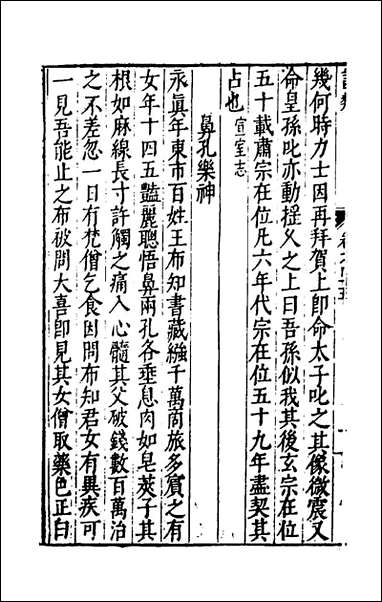 幾何時力士因再拜賀上卽命太子叱之其像微震又
命皇孫叱亦動揺久之上曰吾孫似我其後玄宗在位
五十載肅宗在位凡六年代宗在位五十九年盡契其
占也宣室志
鼻孔樂神
永眞年東市百姓王布知書藏繦千萬商旅多賓之有
女年十四五豔麗聰悟鼻兩孔各垂息肉如皂莢子其
根如麻線長寸許觸之痛入心髓其父破錢數百萬治
之不差忽一日有梵僧乞食因問布知君女有異疾可
一見吾能止之布被問大喜卽見其女僧取藥色正白